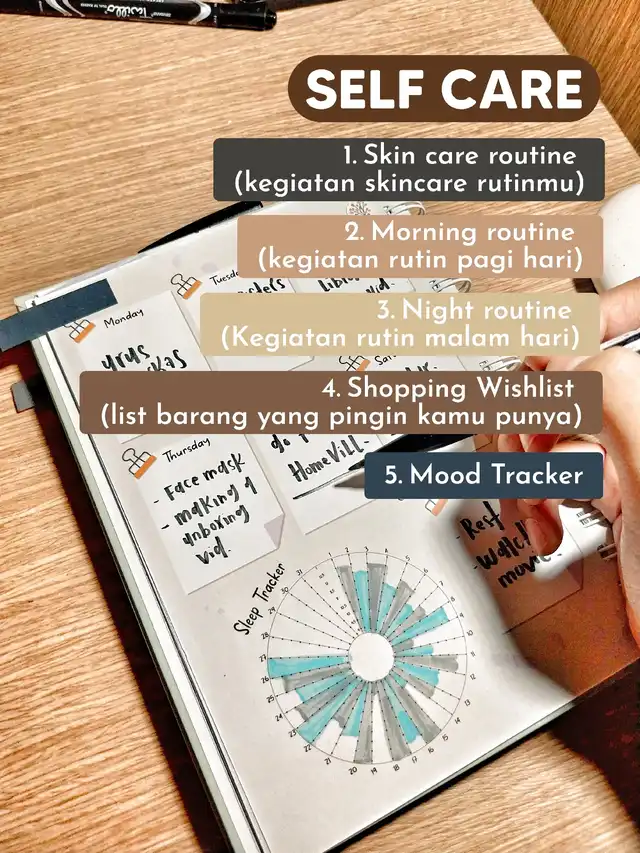 Twillo
SELF CARE
1. Skin care routine
(kegiatan skincare rutinmu)
2. Morning routine
(kegiatan rutin pagi hari)
3. Night routine
(Kegiatan rutin malam hari)
4. Shopping Wishlist
(list barang yang pingin kamu punya)
5. Mood Tracker
Monday
urus
Thursday
- Face mask
- making &
unboxing
vid.
HomeVill.
- Rest
- Watch
movie.
Sleep Tracker
1 2 3 4 5 6 7 8 9 10 11 12 13 14 15 16 17 18 19 20 21 22 23 24 25 26 27 28 29 30 31